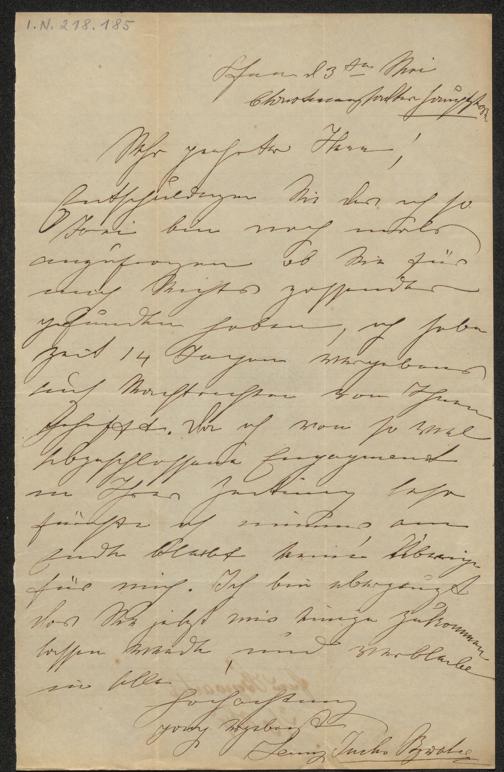 I.N. 218.185
d 3ten Mai
Sehr geehrter Herr!
Entschuldigen Sie das ich so
frei bin noch mals
anzufragen ob Sie für
mich Nichts passendes
gefunden haben, ich habe
zeit 14 Tagen vergebens
auf Nachrichten von Ihnen
gehofft. Da ich von so viel
abgeschlossene Engagement
in Ihrer Zeitung lese
fürchte ich am
Ende bleibt keines übrig
für mich. Ich bin überzeugt
das Sie jetzt mir einige zukommen
lassen werden und verbleibe
in aller
Hochachtung
ganz ergebenst
Jenny Fuchs